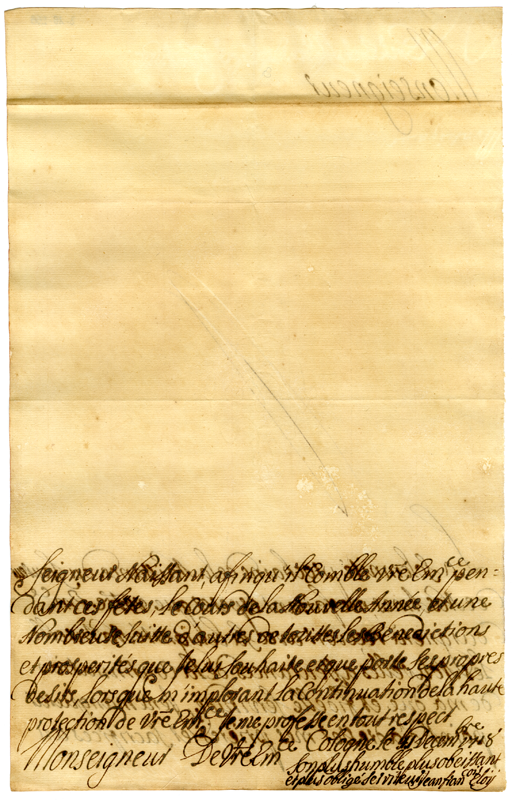 Seigneur Naissant, afin qu'il Comble vre Em.ce pen-
dant ces fêtes, le Cours de la Nouvelle Année et une
Nombreuse suitte d'autres de touttes les Bénédictions
et prosperités que Je luy souhaite et que porte ses propres
desirs, lorsque m'implorant la Continuation de la haute
protection de vre Em.ce Je me professe en tout respect
Monseigneur De Vre Em.ce Cologne le Decemb.re
son plus humble plus obeissant
et plus obligé serviteur Jean